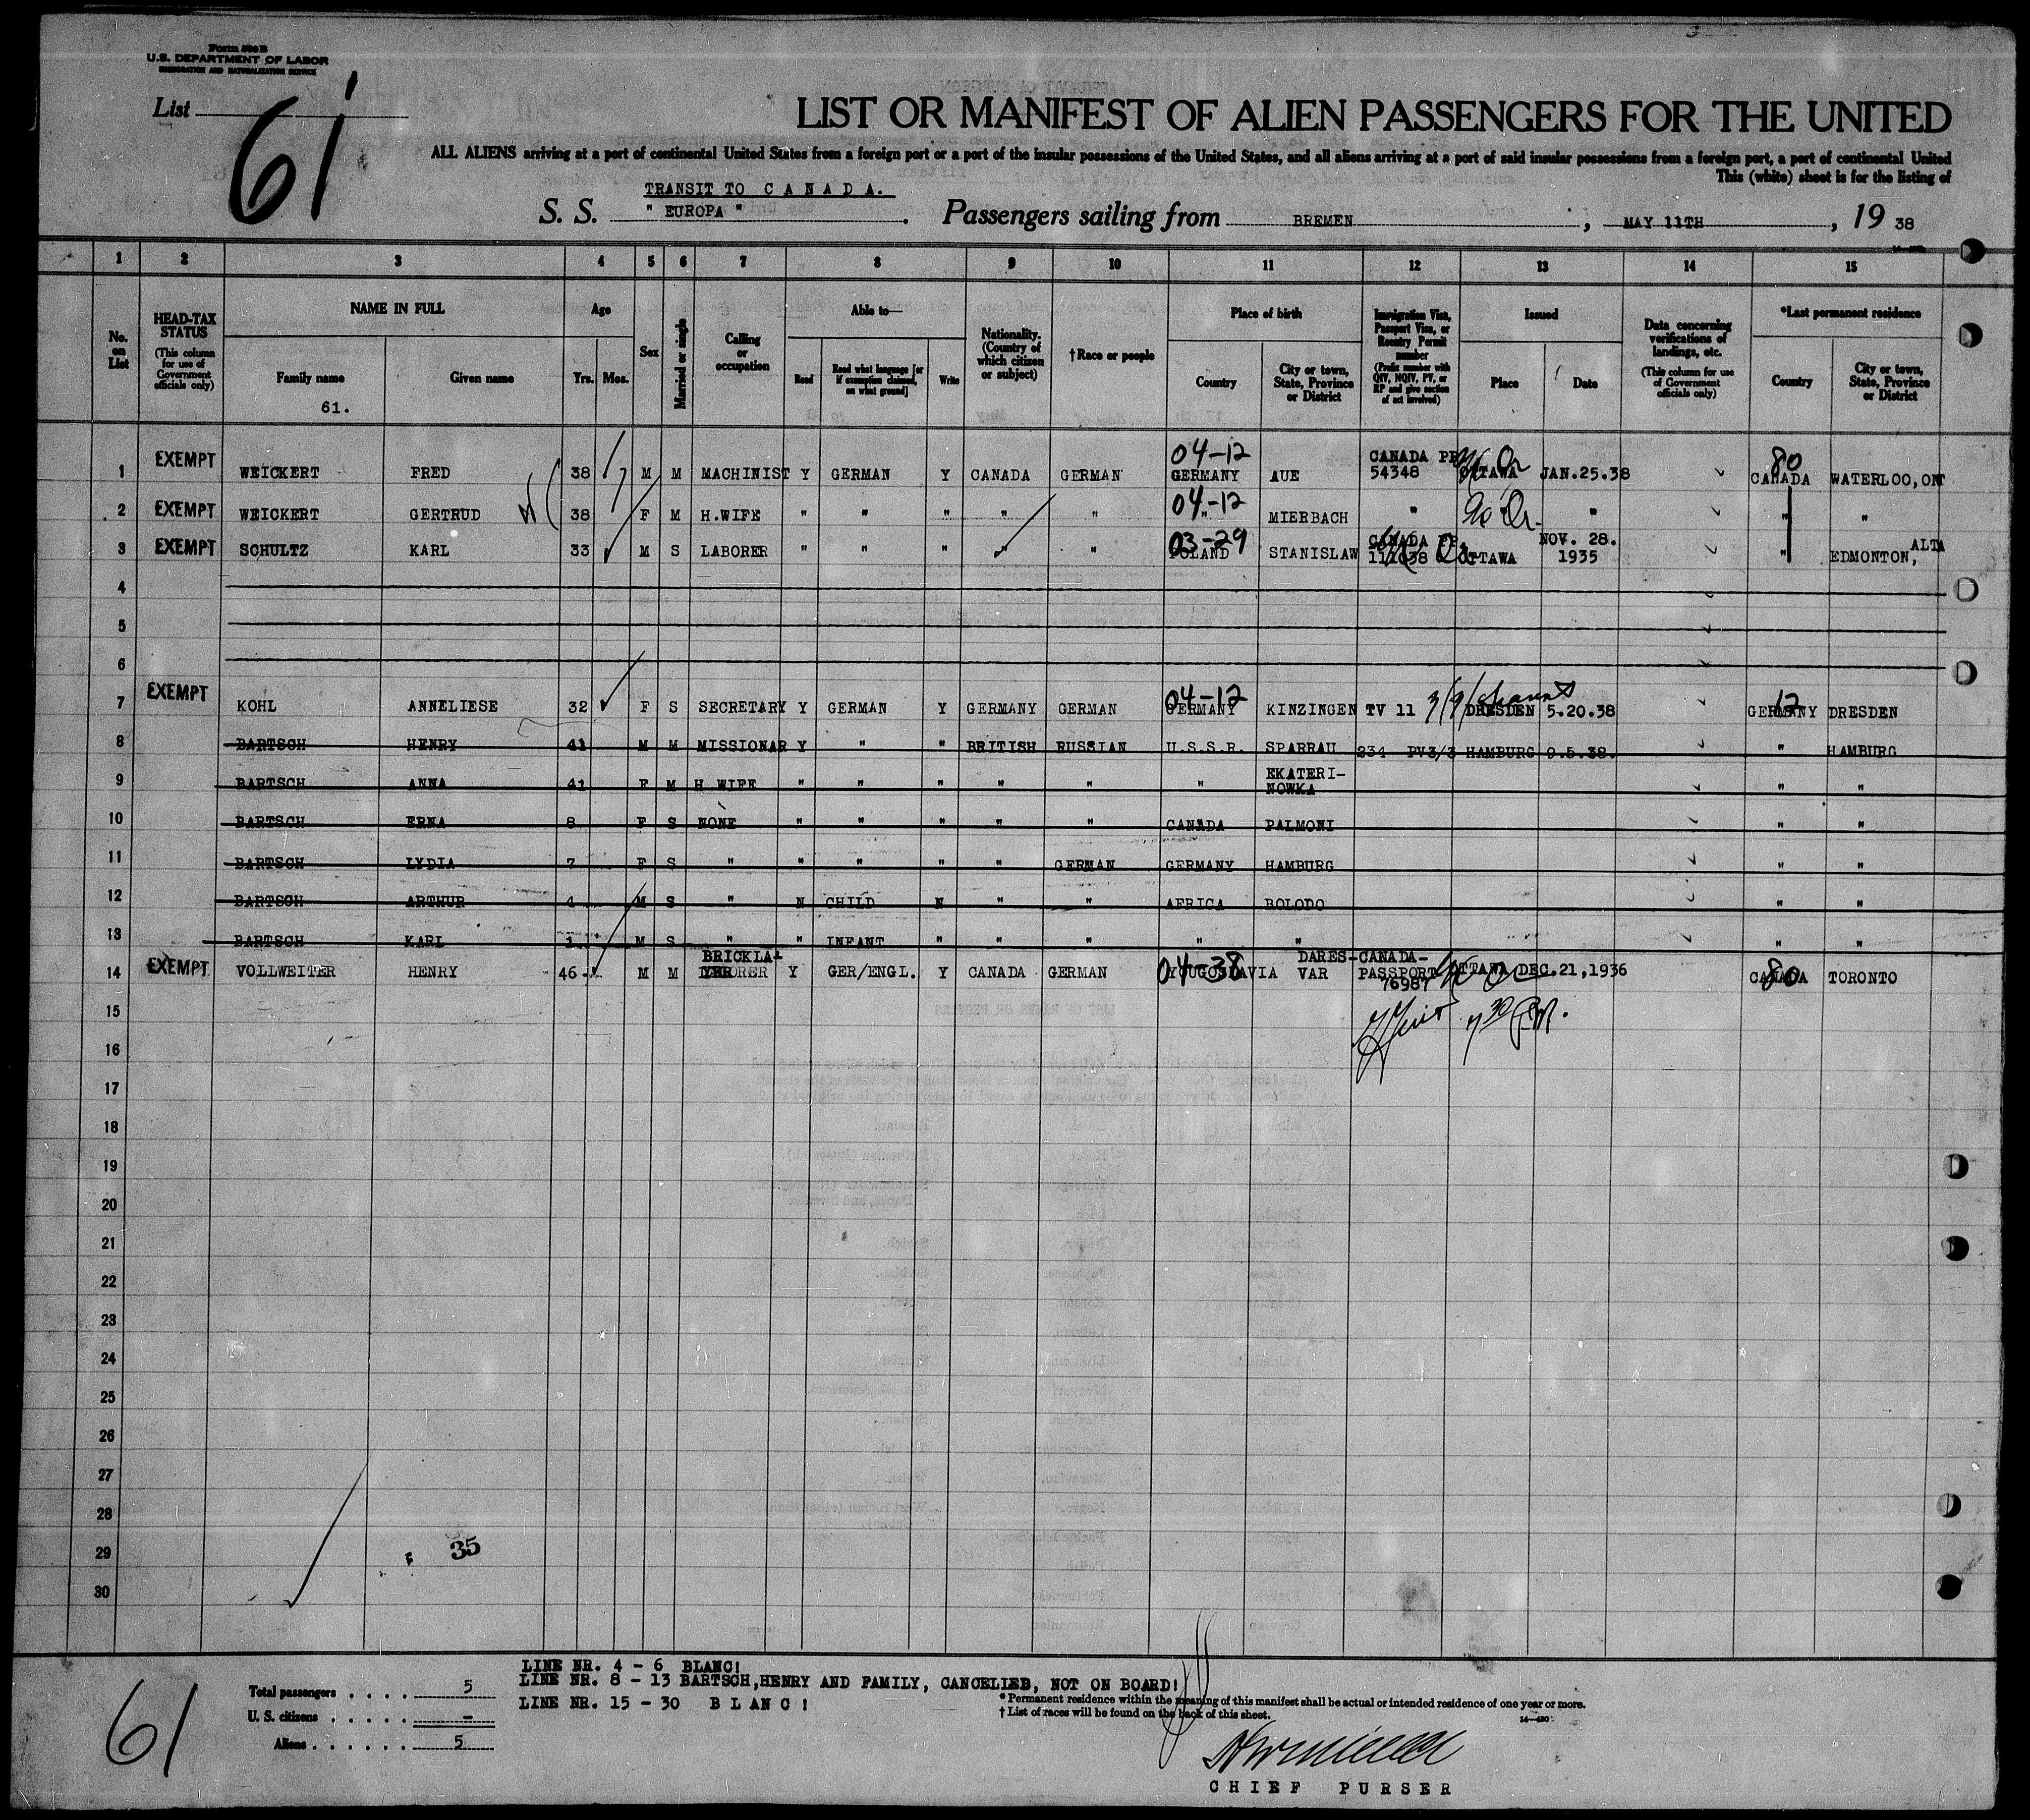 Form 500 B
U.S. DEPARTMENT OF LABOR
IMMIGRATION AND NATURALIZATION SERVICE
List 61
LIST OR MANIFEST OF ALIEN PASSENGERS FOR THE UNITED
ALL ALIENS arriving at a port of continental United States from a foreign port or a port of the insular possessions of the United States, and all aliens arriving at a port of said insular possessions from a foreign port, a port of continental United
This (white) sheet is for the listing of
TRANSIT TO C A N A D A.
S. S. " EUROPA " . Passengers sailing from BREMEN , MAY 11TH , 19 38
1 2 3 4 5 6 7 8 9 10 11 12 13 14 15
No. on List
HEAD-TAX STATUS (This column for use of Government officials only)
NAME IN FULL
Family name
61.
Given name
Age
Yrs. Mos.
Sex
Married or single
Calling or occupation
Able to—
Read
Read what language [or if exemption claimed, on what ground]
Write
Nationality. (Country of which citizen or subject)
†Race or people
Place of birth
Country
City or town, State, Province or District
Immigration Visa, Passport Visa, or Reentry Permit number (Prefix number with QIV, NQIV, PV, or RP and give section of act involved)
Issued
Place
Date
Data concerning verifications of landings, etc. (This column for use of Government officials only)
*Last permanent residence
Country
City or town, State, Province or District
1 EXEMPT WEICKERT FRED 38 M M MACHINIST Y GERMAN Y CANADA GERMAN 04-12 GERMANY AUE CANADA PP 54348 OTTAWA JAN.25.38 80 CANADA WATERLOO,ONT
2 EXEMPT WEICKERT GERTRUD 38 F M H.WIFE " " " " " 04-12 " MIERBACH " " " " "
3 EXEMPT SCHULTZ KARL 33 M S LABORER " " " " " 03-29 POLAND STANISLAW CANADA PP 111038 OTTAWA NOV. 28. 1935 " EDMONTON, ALTA
4
5
6
7 EXEMPT KOHL ANNELIESE 32 F S SECRETARY Y GERMAN Y GERMANY GERMAN 04-12 GERMANY KINZINGEN TV 11 DRESDEN 5.20.38 12 GERMANY DRESDEN
8 BARTSCH HENRY 41 M M MISSIONAR Y " " BRITISH RUSSIAN U.S.S.R. SPARRAU 234 PV3/3 HAMBURG 9.5.38. " HAMBURG
9 BARTSCH ANNA 41 F M H.WIFE " " " " " " EKATERI-NOWKA " "
10 BARTSCH ERNA 8 F S NONE " " " " " CANADA PALMONI " "
11 BARTSCH LYDIA 7 F S " " " " " GERMAN GERMANY HAMBURG " "
12 BARTSCH ARTHUR 4 M S " N CHILD N " " AFRICA BOLODO " "
13 BARTSCH KARL 1 M S " " INFANT " " " " " " "
14 EXEMPT VOLLWEITER HENRY 46 M M BRICKLA-YER Y GER/ENGL. Y CANADA GERMAN 04-38 YOUGOSLAVIA DARES-VAR CANADA-PASSPORT 76987 OTTAWA DEC.21,1936 80 CANADA TORONTO
15
7 30 P.M.
16
17
18
19
20
21
22
23
24
25
26
27
28
29
35
30
61
Total passengers . . . . 5
U. S. citizens . . . . . –
Aliens . . . . . . 5
LINE NR. 4 - 6 BLANC!
LINE NR. 8 - 13 BARTSCH,HENRY AND FAMILY, CANCELIED, NOT ON BOARD!
LINE NR. 15 - 30 B L A N C !
* Permanent residence within the meaning of this manifest shall be actual or intended residence of one year or more.
† List of races will be found on the back of this sheet.
14—430
C H I E F P U R S E R